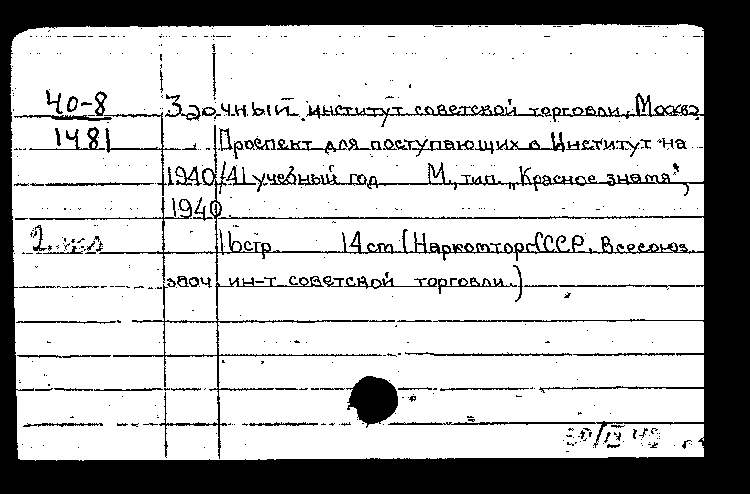 40-8 Заочный институт советской торговли, Москва
1481 Проспект для поступающих в Институт на
1940/41 учебный год М., тип. „Красное знамя",
1940
2. экз 16 стр 14 cm (Наркомторг СССР. Всесоюз
заоч. ин-т советской торговли.)
30/IX 40